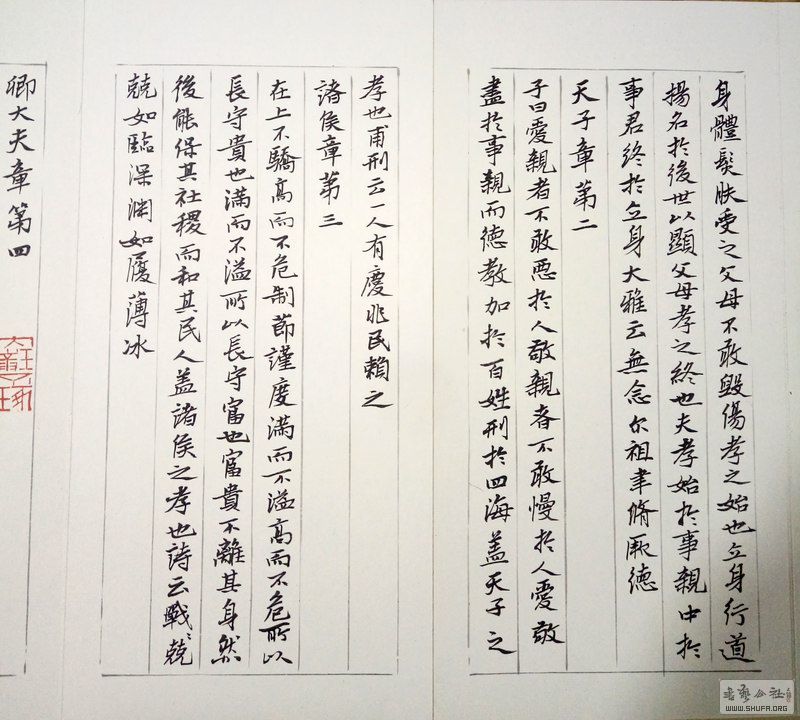 身體髮膚受之父母不敢毀傷孝之始也立身行道
揚名於後世以顯父母孝之終也夫孝始於事親中於
事君終於立身大雅云無念尔祖聿脩厥德
天子章第二
子曰愛親者不敢惡於人敬親者不敢慢於人愛敬
盡於事親而德教加於百姓刑於四海盖天子之
孝也甫刑云一人有慶兆民賴之
諸侯章第三
在上不驕高而不危制節謹度滿而不溢高而不危所以
長守貴也滿而不溢所以長守富也富貴不離其身然
後能保其社稷而和其民人盖諸侯之孝也詩云戰〻兢
兢如臨深渊如履薄冰
卿大夫章第四
WWW.SHUFA.ORG